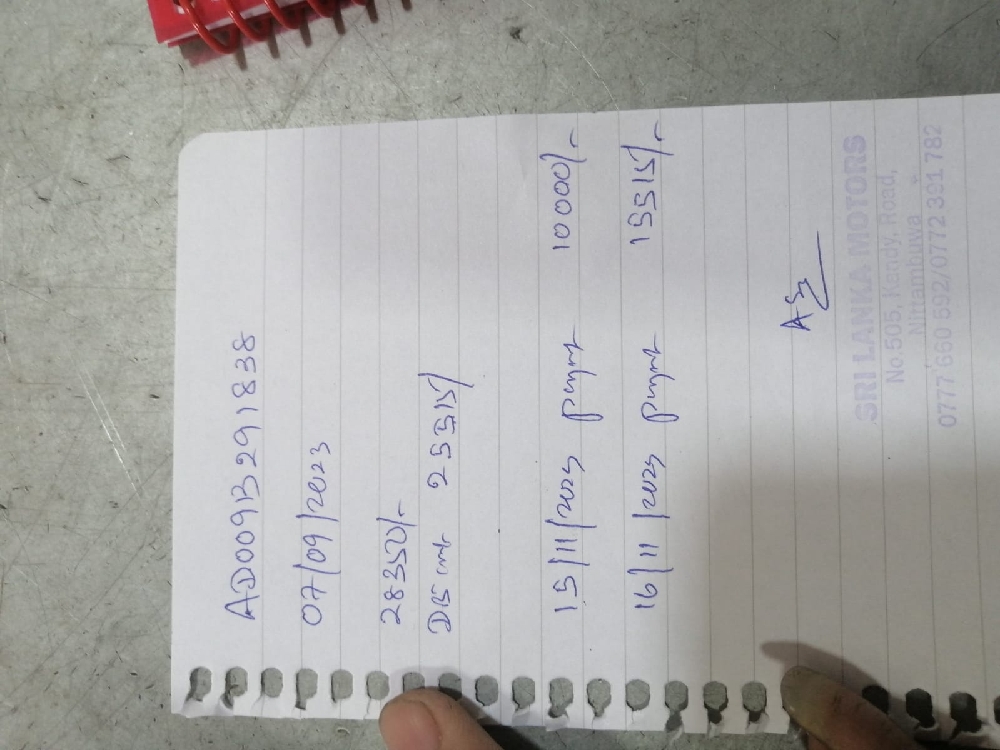 AD009B291838
07/09/2023
28350/-
DB 25515/
15/11/2023 paymt 10000/-
16/11/2023 paymt 15515/-
SRI LANKA MOTORS
No.505, Kandy, Road,
Nittambuwa
0777 660 592/0772 391 782